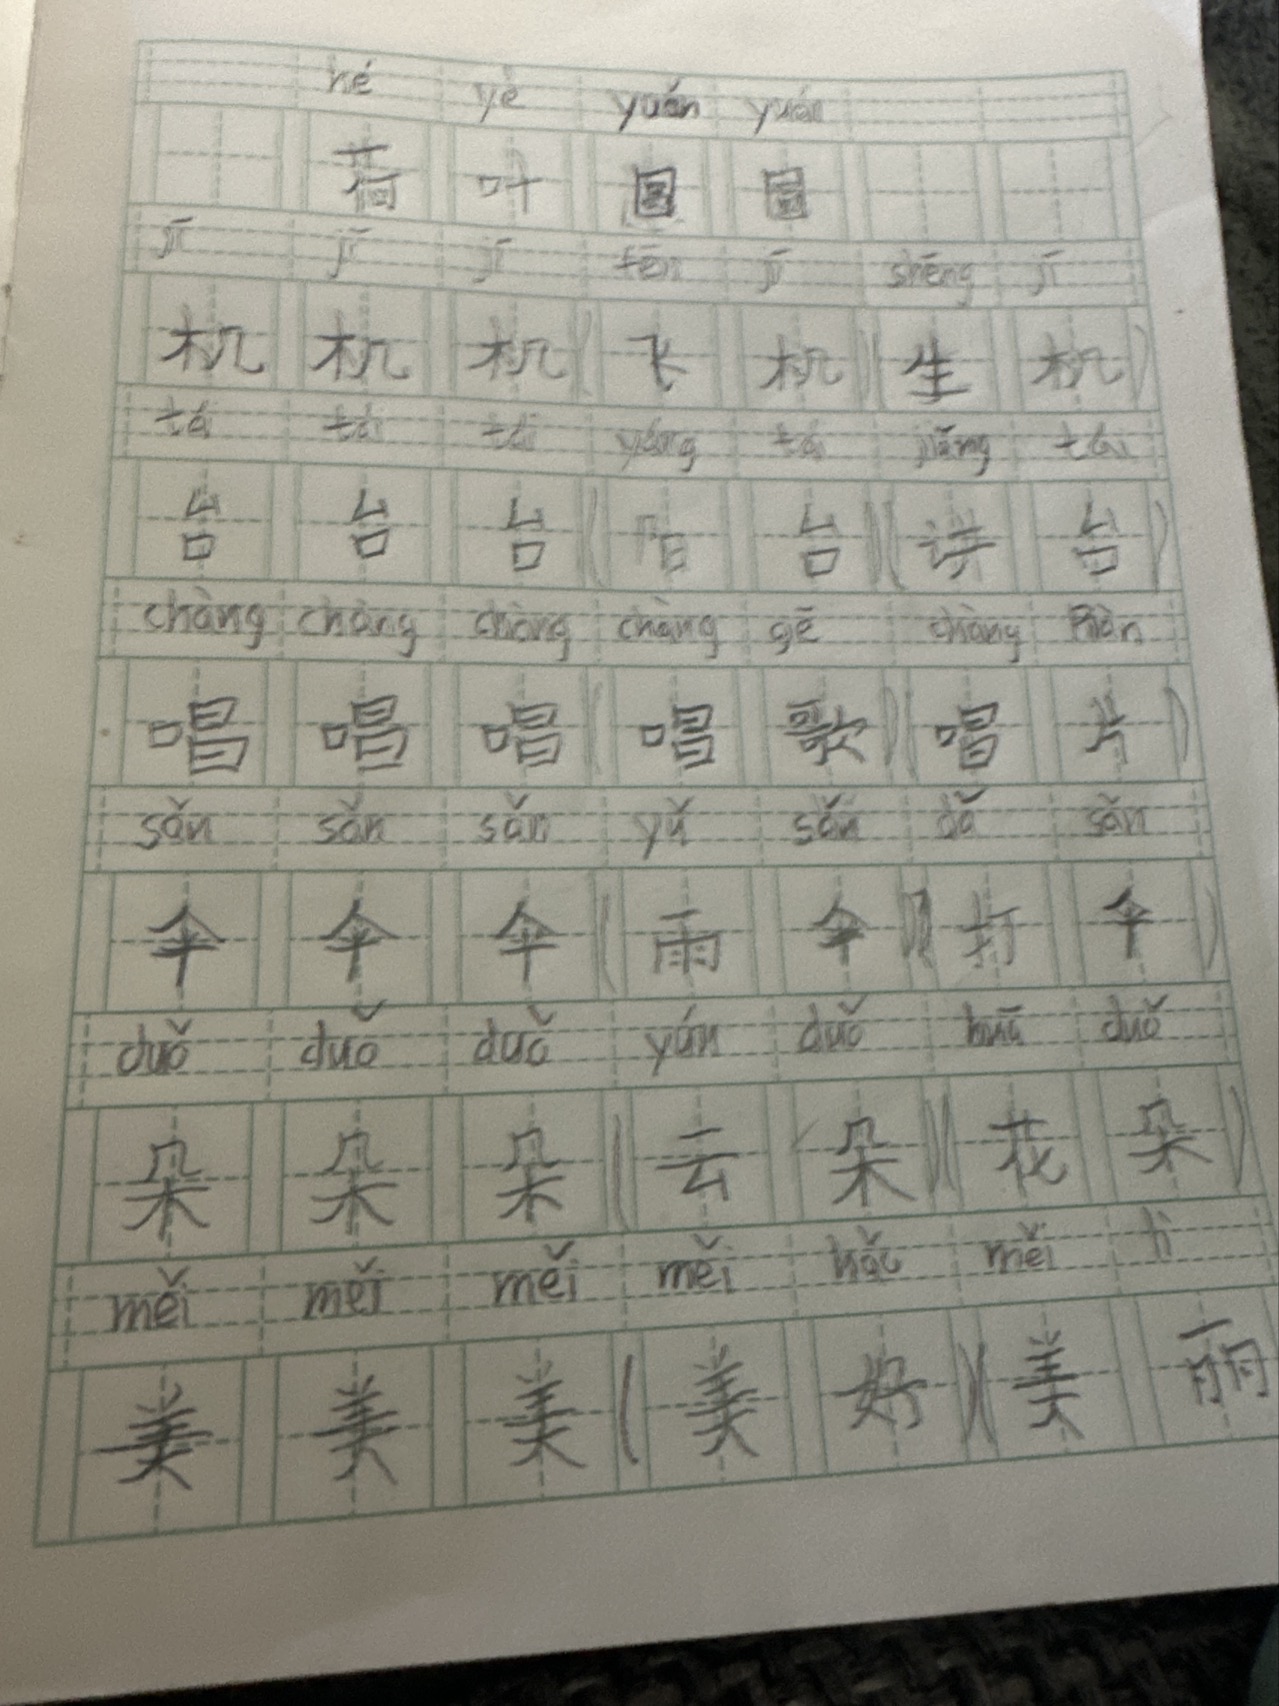 hé yè yuán yuán
荷 叶 圆 圆
jī jī jī fēn jī shēng jī
机 机 机(飞 机)(生 机)
tái tái tái yáng tái jiǎng tái
台 台 台( 台)(讲 台)
chàng chàng chàng chàng gē chàng Piàn
唱 唱 唱(唱 歌)(唱 片)
sǎn sǎn sǎn yǔ sǎn dǎ sǎn
伞 伞 伞(雨 伞)(打 伞)
duǒ duǒ duǒ yún duǒ huā duǒ
朵 朵 朵(云 朵)(花 朵)
měi měi měi měi hǎo měi lì
美 美 美(美 好)(美 丽